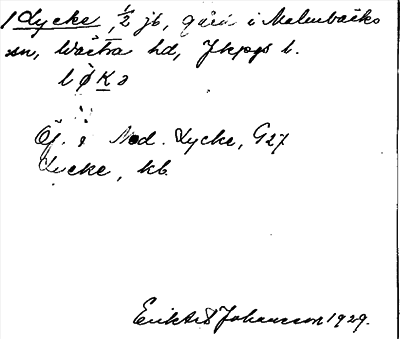 1 Lycke, 1/2 jb, gård i Malmbäcks
sn, Västra hd, Jkpgs l.
løKə
Öf. o Ned. Lycke, G27
Lycke, kb
Erik Johansson 1929.